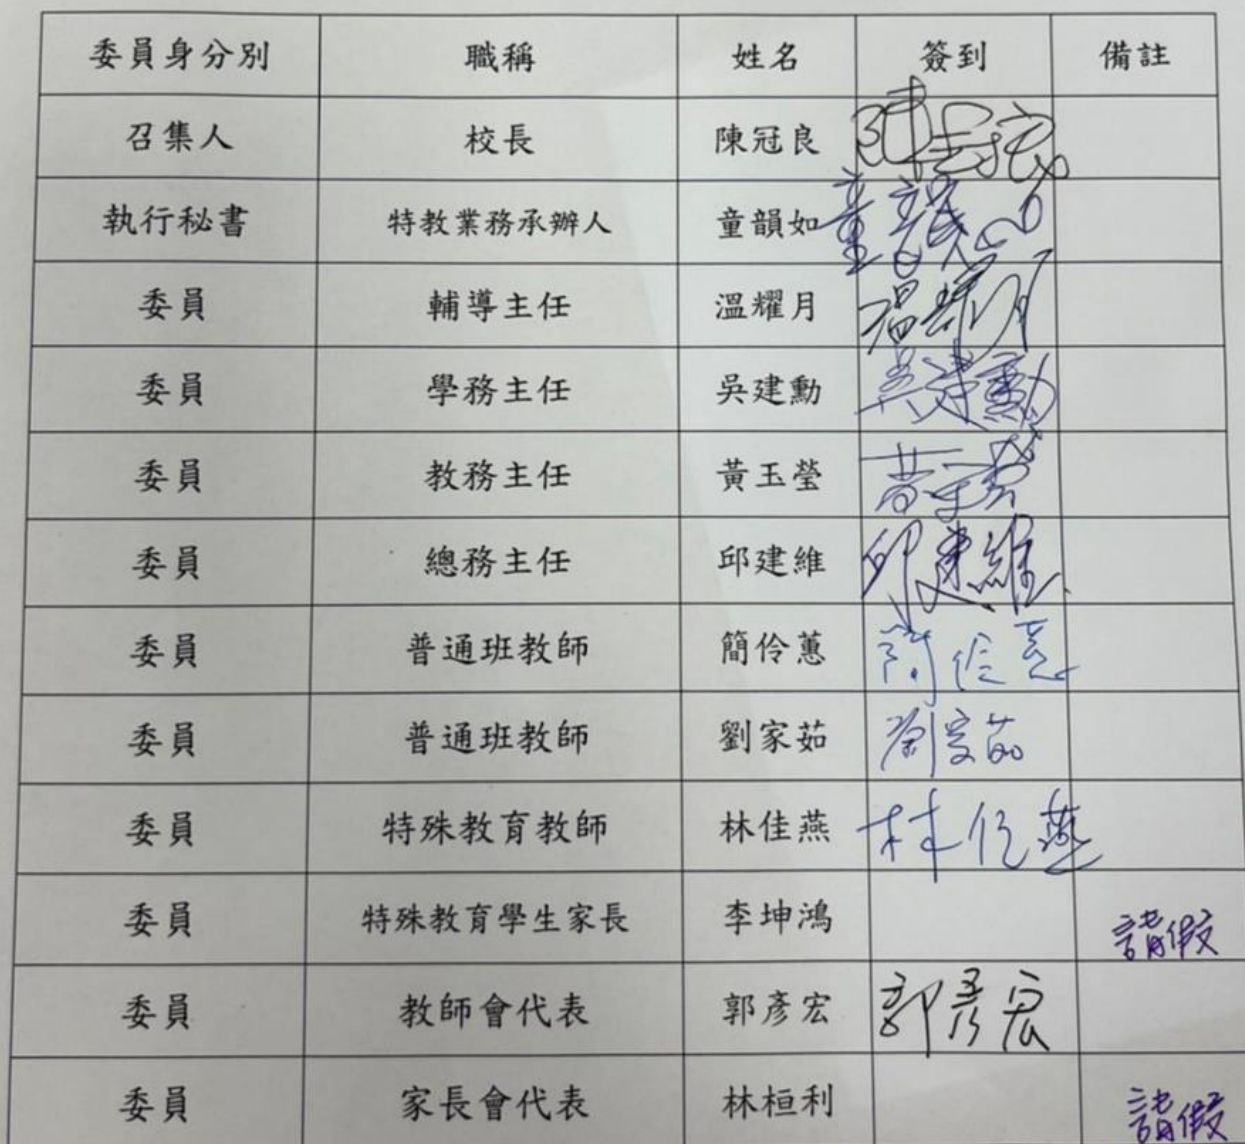 委員身分別 職稱 姓名 簽到 備註
召集人 校長 陳冠良 陳冠良
執行秘書 特教業務承辦人 童韻如 童韻如
委員 輔導主任 溫耀月 溫耀月
委員 學務主任 吳建勳 吳建勳
委員 教務主任 黃玉瑩 黃玉瑩
委員 總務主任 邱建維 邱建維
委員 普通班教師 簡伶蕙 簡伶蕙
委員 普通班教師 劉家茹 劉家茹
委員 特殊教育教師 林佳燕 林佳燕
委員 特殊教育學生家長 李坤鴻 請假
委員 教師會代表 郭彥宏 郭彥宏
委員 家長會代表 林桓利 請假